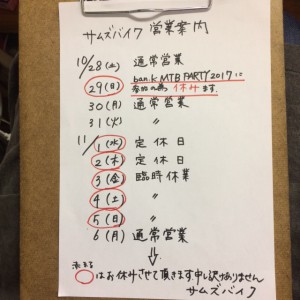 サムズバイク 営業案内
10/28(土) 通常営業
29(日) ban.K MTB PARTY 2017に
参加の為 休みます。
30(月) 通常営業
31(火) 〃
11/1(水) 定休日
2(木) 定休日
3(金) 臨時休業
4(土) 〃
5(日) 〃
6(月) 通常営業
赤まる
○はお休みさせて頂きます。申し訳ありません
サムズバイク